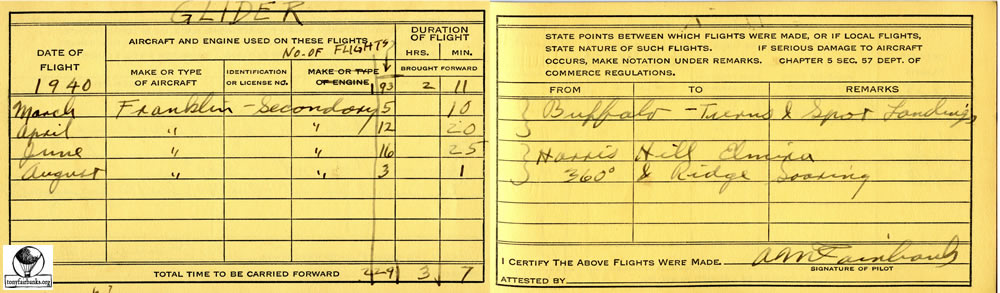 GLIDER
DATE OF FLIGHT
1940
AIRCRAFT AND ENGINE USED ON THESE FLIGHTS
NO. OF FLIGHTS
DURATION OF FLIGHT
HRS. MIN.
MAKE OR TYPE OF AIRCRAFT
IDENTIFICATION OR LICENSE NO.
MAKE OR TYPE OF ENGINE
BROUGHT FORWARD
193 2 11
March Franklin - Secondary 5 10
April " " 12 20
June " " 16 25
August " " 3 1
TOTAL TIME TO BE CARRIED FORWARD 229 3 7
tonyfairbanks.org
STATE POINTS BETWEEN WHICH FLIGHTS WERE MADE, OR IF LOCAL FLIGHTS,
STATE NATURE OF SUCH FLIGHTS. IF SERIOUS DAMAGE TO AIRCRAFT
OCCURS, MAKE NOTATION UNDER REMARKS. CHAPTER 5 SEC. 57 DEPT. OF
COMMERCE REGULATIONS.
FROM TO REMARKS
Buffalo - Turns & Spot Landings
Harris Hill Elmira
360° & Ridge Soaring
I CERTIFY THE ABOVE FLIGHTS WERE MADE.
SIGNATURE OF PILOT
ATTESTED BY